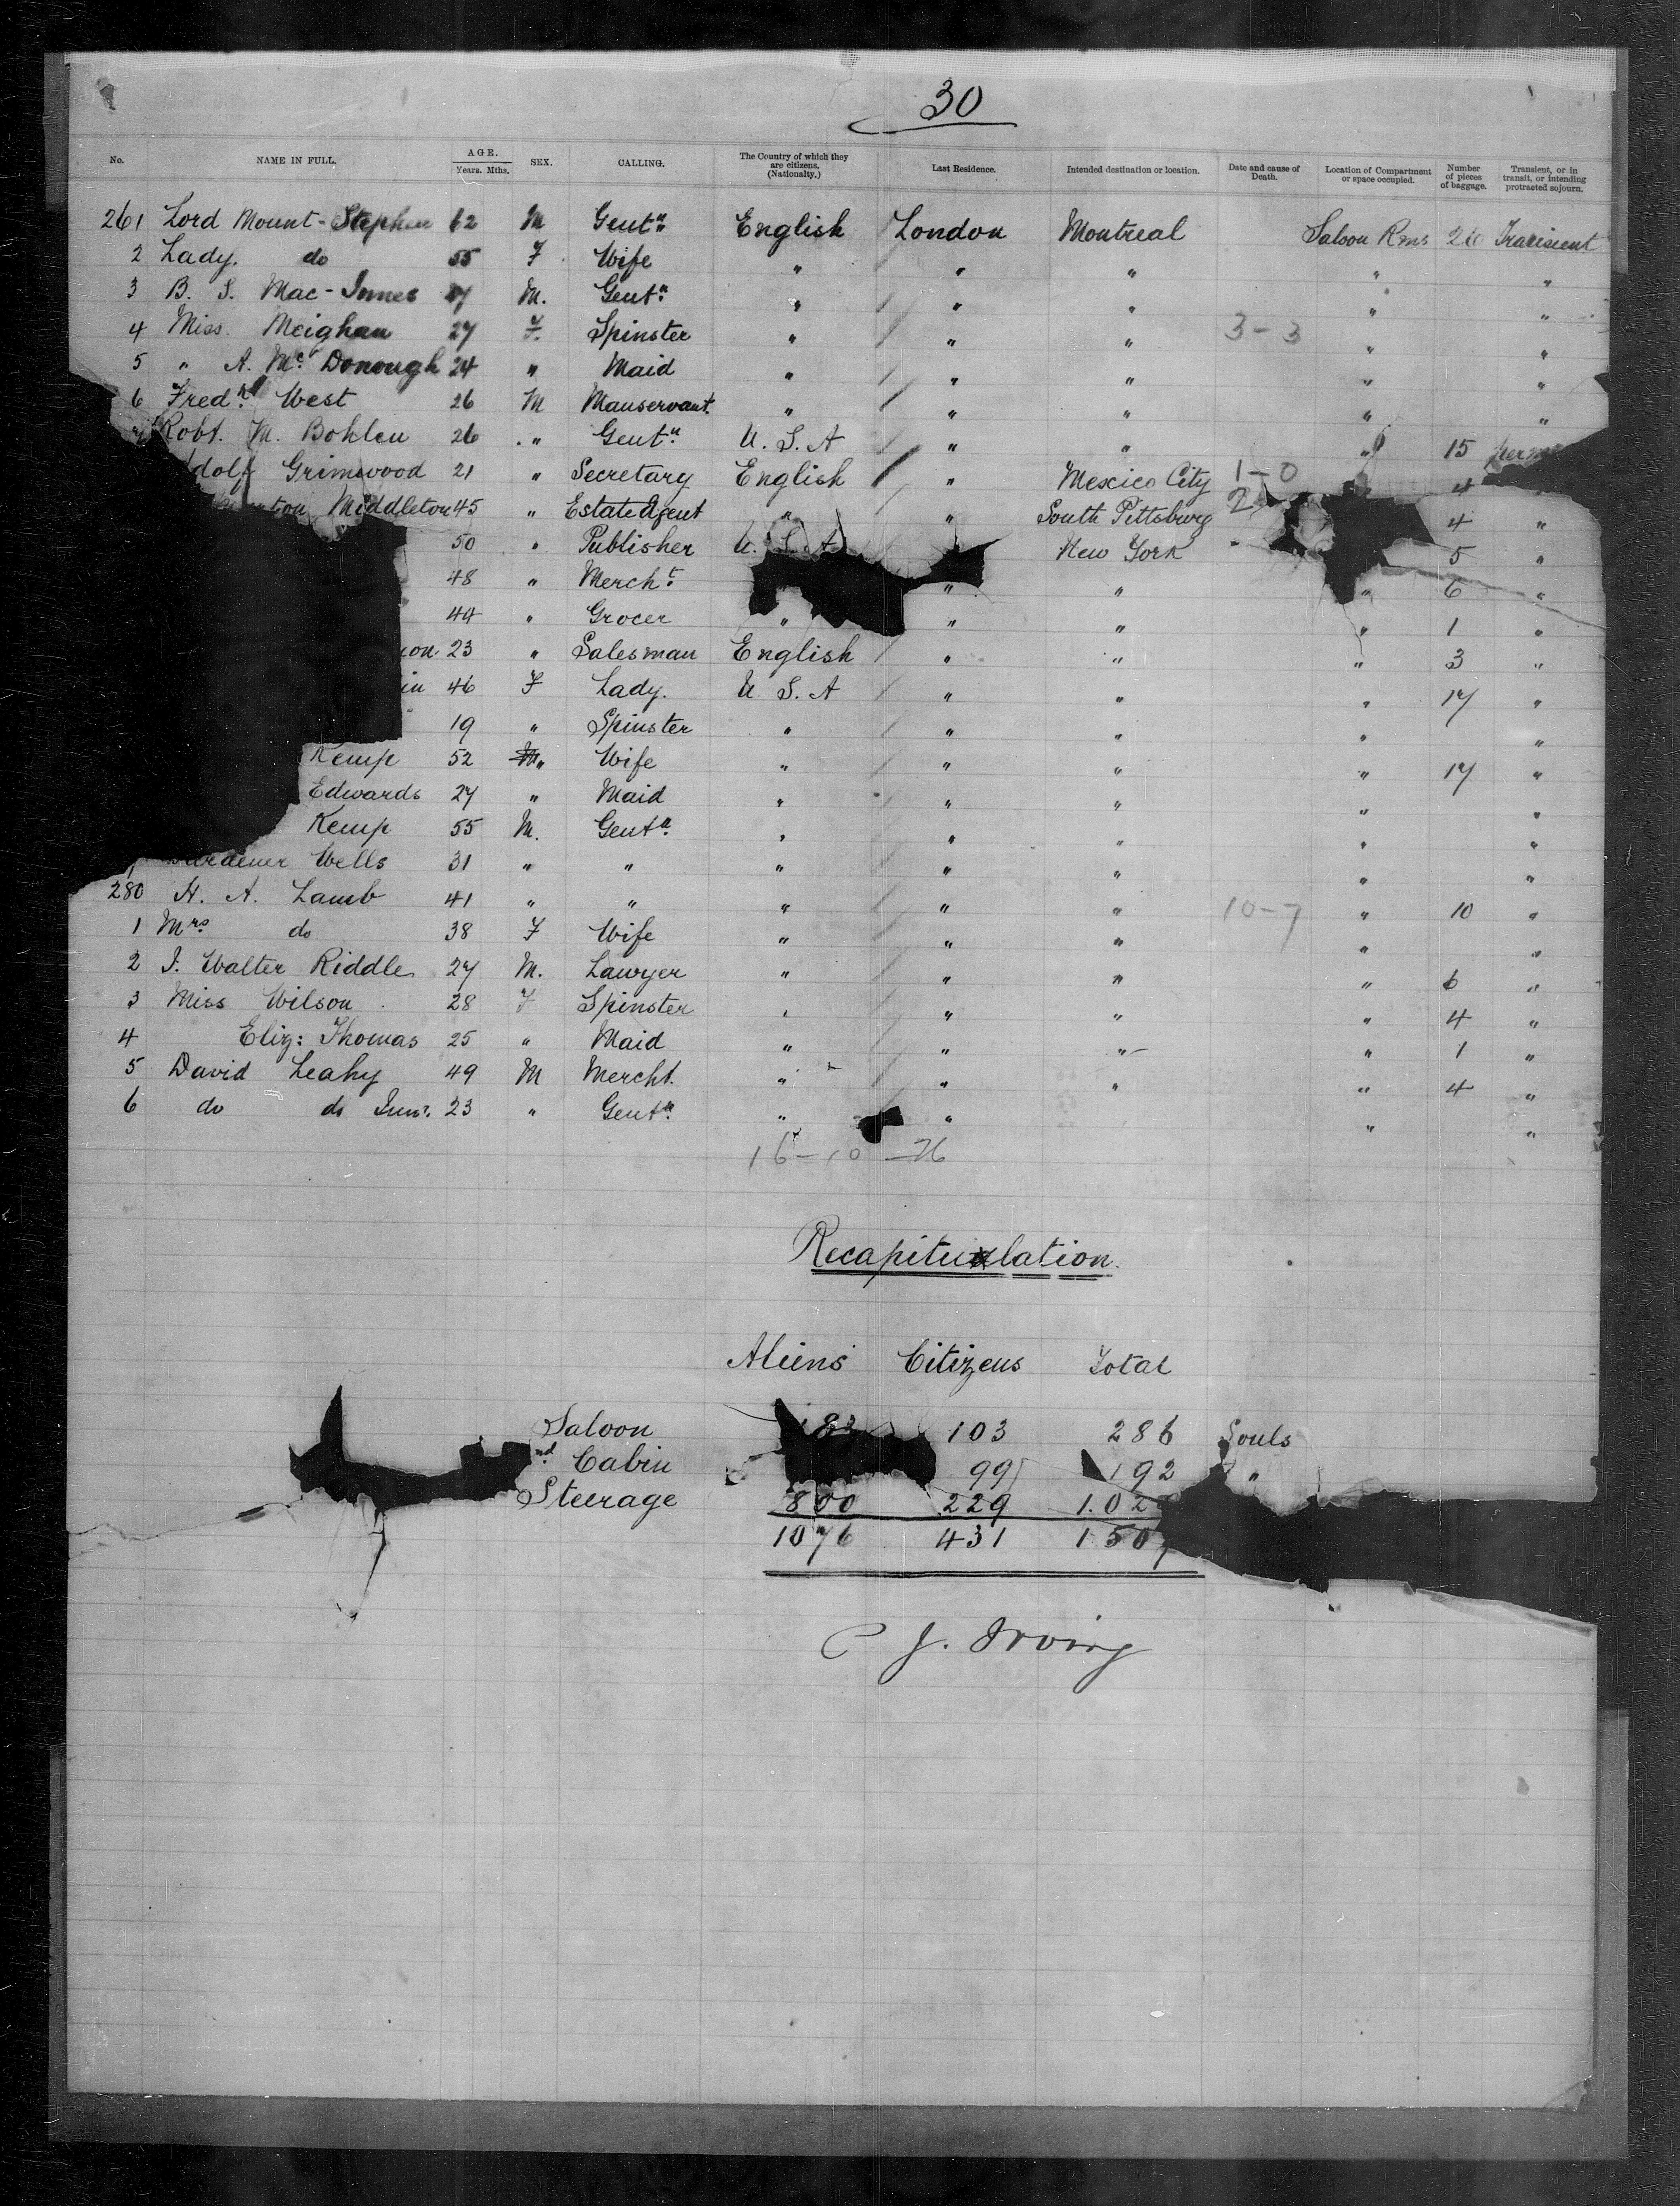 30
No. NAME IN FULL. AGE. Years. Mths. SEX. CALLING. The Country of which they are citizens. (Nationality.) Last Residence. Intended destination or location. Date and cause of Death. Location of Compartment or space occupied. Number of pieces of baggage. Transient, or in transit, or intending protracted sojourn.
261 Lord Mount-Stephen 62 M Gentn English London Montreal Saloon Rms Transient
2 Lady. do 55 F Wife " " " " "
3 B. S. Mac-Innes M. Gentn " " " " "
4 Miss. Meighan 27 F. Spinster " " " 3-3 " "
5 " A. Mc Donough 24 " Maid " " " " "
6 Fredk West 26 M Manservant. " " " " "
Robt. M. Bohlen 26 " Gentn U.S.A " " " 15
Grimwood 21 " Secretary English " Mexico City 1-0 4
Middleton 45 " Estate Agent " " South Pittsburg 2 4 "
50 " Publisher U.S.A New York 5 "
48 " Mercht " " " 6 "
44 " Grocer " " " " 1 "
23 " Salesman English " " " 3 "
46 F Lady. U.S.A " " " 17 "
19 " Spinster " " " " "
Kemp 52 " Wife " " " " 17 "
Edwards 27 " Maid " " " " "
Kemp 55 M. Gentn " " " " "
Wells 31 " " " " " " "
280 H. A. Lamb 41 " " " " " 10-7 " 10 "
1 Mrs do 38 F Wife " " " " "
2 J. Walter Riddle 27 M. Lawyer " " " " 6 "
3 Miss Wilson 28 F Spinster " " " " 4 "
4 Eliz: Thomas 25 " Maid " " " " 1 "
5 David Leahy 49 M Mercht. " " " " 4 "
6 do do Junr. 23 " Gentn " " " "
16-10-26
Recapitulation.
Aliens Citizens Total
Saloon 183 103 286 Souls
nd Cabin 99 192 "
Steerage 800 229 1.02
1076 431 1507
J. Irving